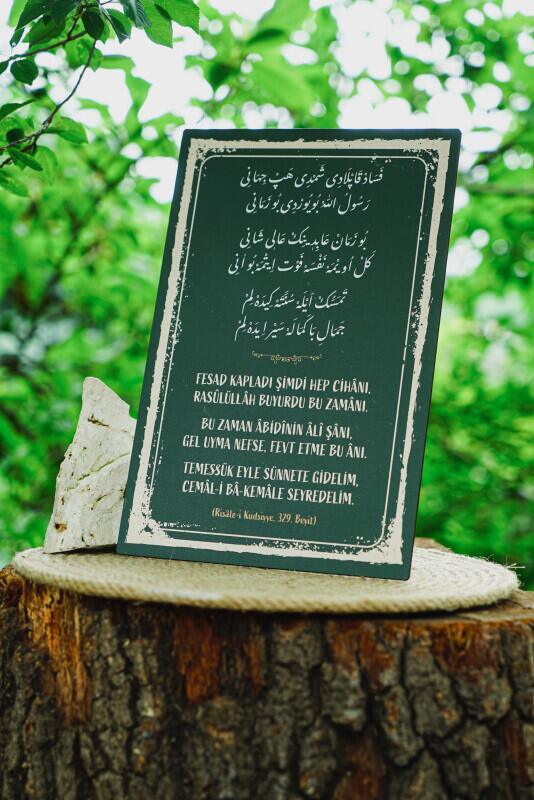 فَسَادْ قَاپْلَادِی شِمْدِی هَپْ جِهَانِی
رَسُولُ اللّٰهْ بُویُورْدِی بُو زَمَانِی
بُو زَمَانْ عَابِدِینِنْكْ عَالِی شَانِی
كَلْ اُویْمَهْ نَفْسَهْ فَوْتْ اِیتْمَهْ بُو اٰنِی
تَمَسُّكْ اَیْلَهْ سُنَّتَهْ كِیدَهْ لِمْ
جَمَالِ بَا كَمَالَهْ سَیْرْ اِیدَهْ لِمْ
FESAD KAPLADI ŞİMDİ HEP CİHÂNI,
RASÛLÜLLÂH BUYURDU BU ZAMÂNI.
BU ZAMAN ÂBİDÎNİN ÂLÎ ŞÂNI,
GEL UYMA NEFSE, FEVT ETME BU ÂNI.
TEMESSÜK EYLE SÜNNETE GİDELİM,
CEMÂL-İ BÂ-KEMÂLE SEYREDELİM.
(Risâle-i Kudsiyye, 329. Beyit)